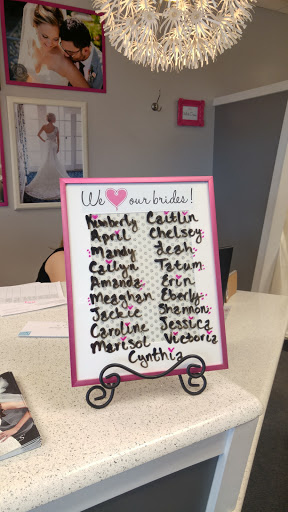 We ♥ our brides!
Kimberly Caitlin
April Chelsey
Mandy Leah
Cailyn Tatum
Amanda Erin
Meaghan Eberly
Jackie Shannon
Caroline Jessica
Marisol Victoria
Cynthia